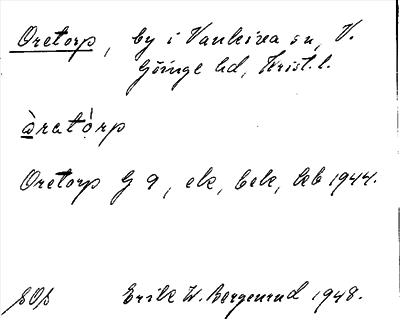 Oretorp, by i Vankiva sn, V.
Göinge hd, Krist. l.
àratòrp
Oretorp G 9, ek, bek, kb 1944.
SOS Erik W. Bergenrud 1948.